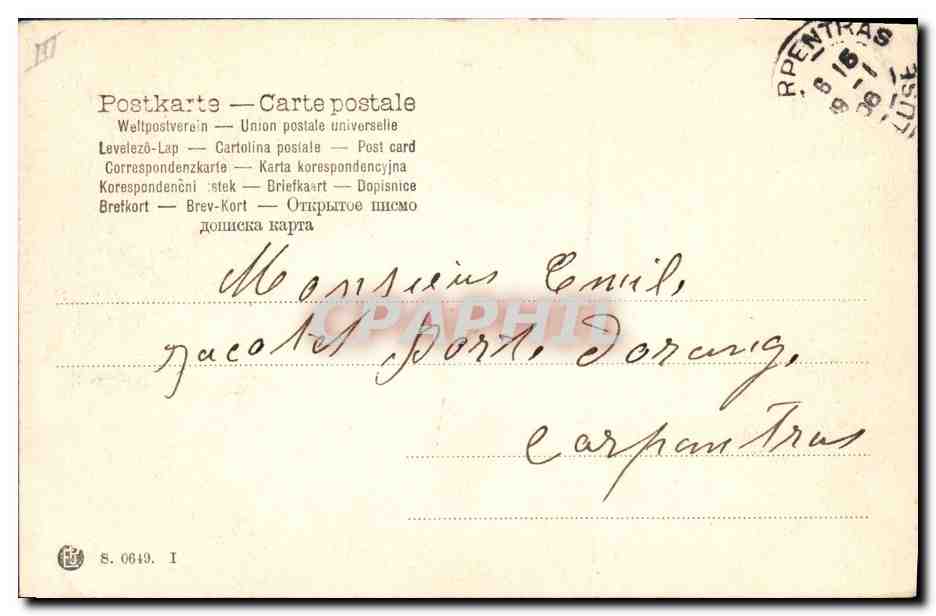 III
RPENTRAS
6 15
9 - 1
06
Postkarte — Carte postale
Weltpostverein — Union postale universelle
Levelezö-Lap — Cartolina postale — Post card
Correspondenzkarte — Karta korespondencyjna
Korespondenční lístek — Briefkaart — Dopisnice
Brefkort — Brev-Kort — Открытое писмо
дописка карта
Monsieur Emil
CPAPHIL
Jacotet Porte Dorang,
Carpantras
S. 0649. I